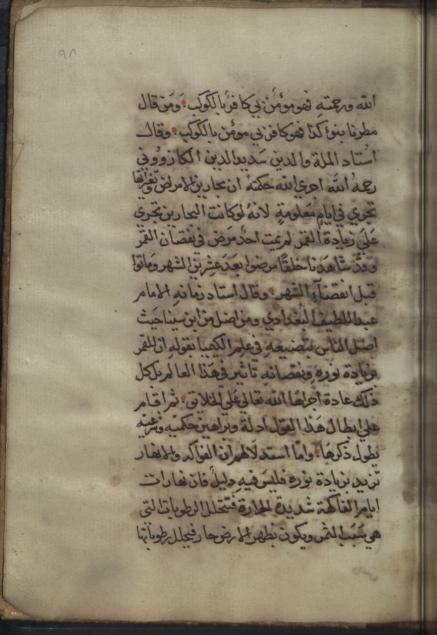 الله ورحمته فهو مؤمن بي كافر بالكوكب ومن قال
مطرنا بنوء كذا فهو كافر بي مؤمن بالكوكب وقال
استاد الملة والدين سديد الدين الكازروني
رحمه الله اجري الله حكمته ان بحارين الامراض
تجري في ايام معلومة لانه لو كانت البحارين تجري
على زيادة القمر لم يمت احد مرض في نقصان القمر
وقد شاهدنا خلقا مرضوا بعد عشرين الشهر وماتوا
قبل انقضاء الشهر وقال استاد زمانه الامام
عبد اللطيف البغدادي ومن اضل من ابن سينا حيث
اضل الناس بتصنيعه في علم الكيميا بقوله ان للقمر
بزيادة نوره ونقصانه تاثير في هذا العالم بل كل
ذلك عادة اجراها الله تعالى على الخلائق ثم اقام
على ابطال هذا القول ادلة وبراهين حكمية وشرعية
يطول ذكرها واما استدلالهم ان الفواكه والابقار
تزيد بزيادة نوره فليس فيه دليل فان نهارات
ايام الفاكهة شديدة الحرارة فتتحلل الرطوبات التي
هي سبب النمو ويكون بظهر الارض حار فيحلل رطوباتها